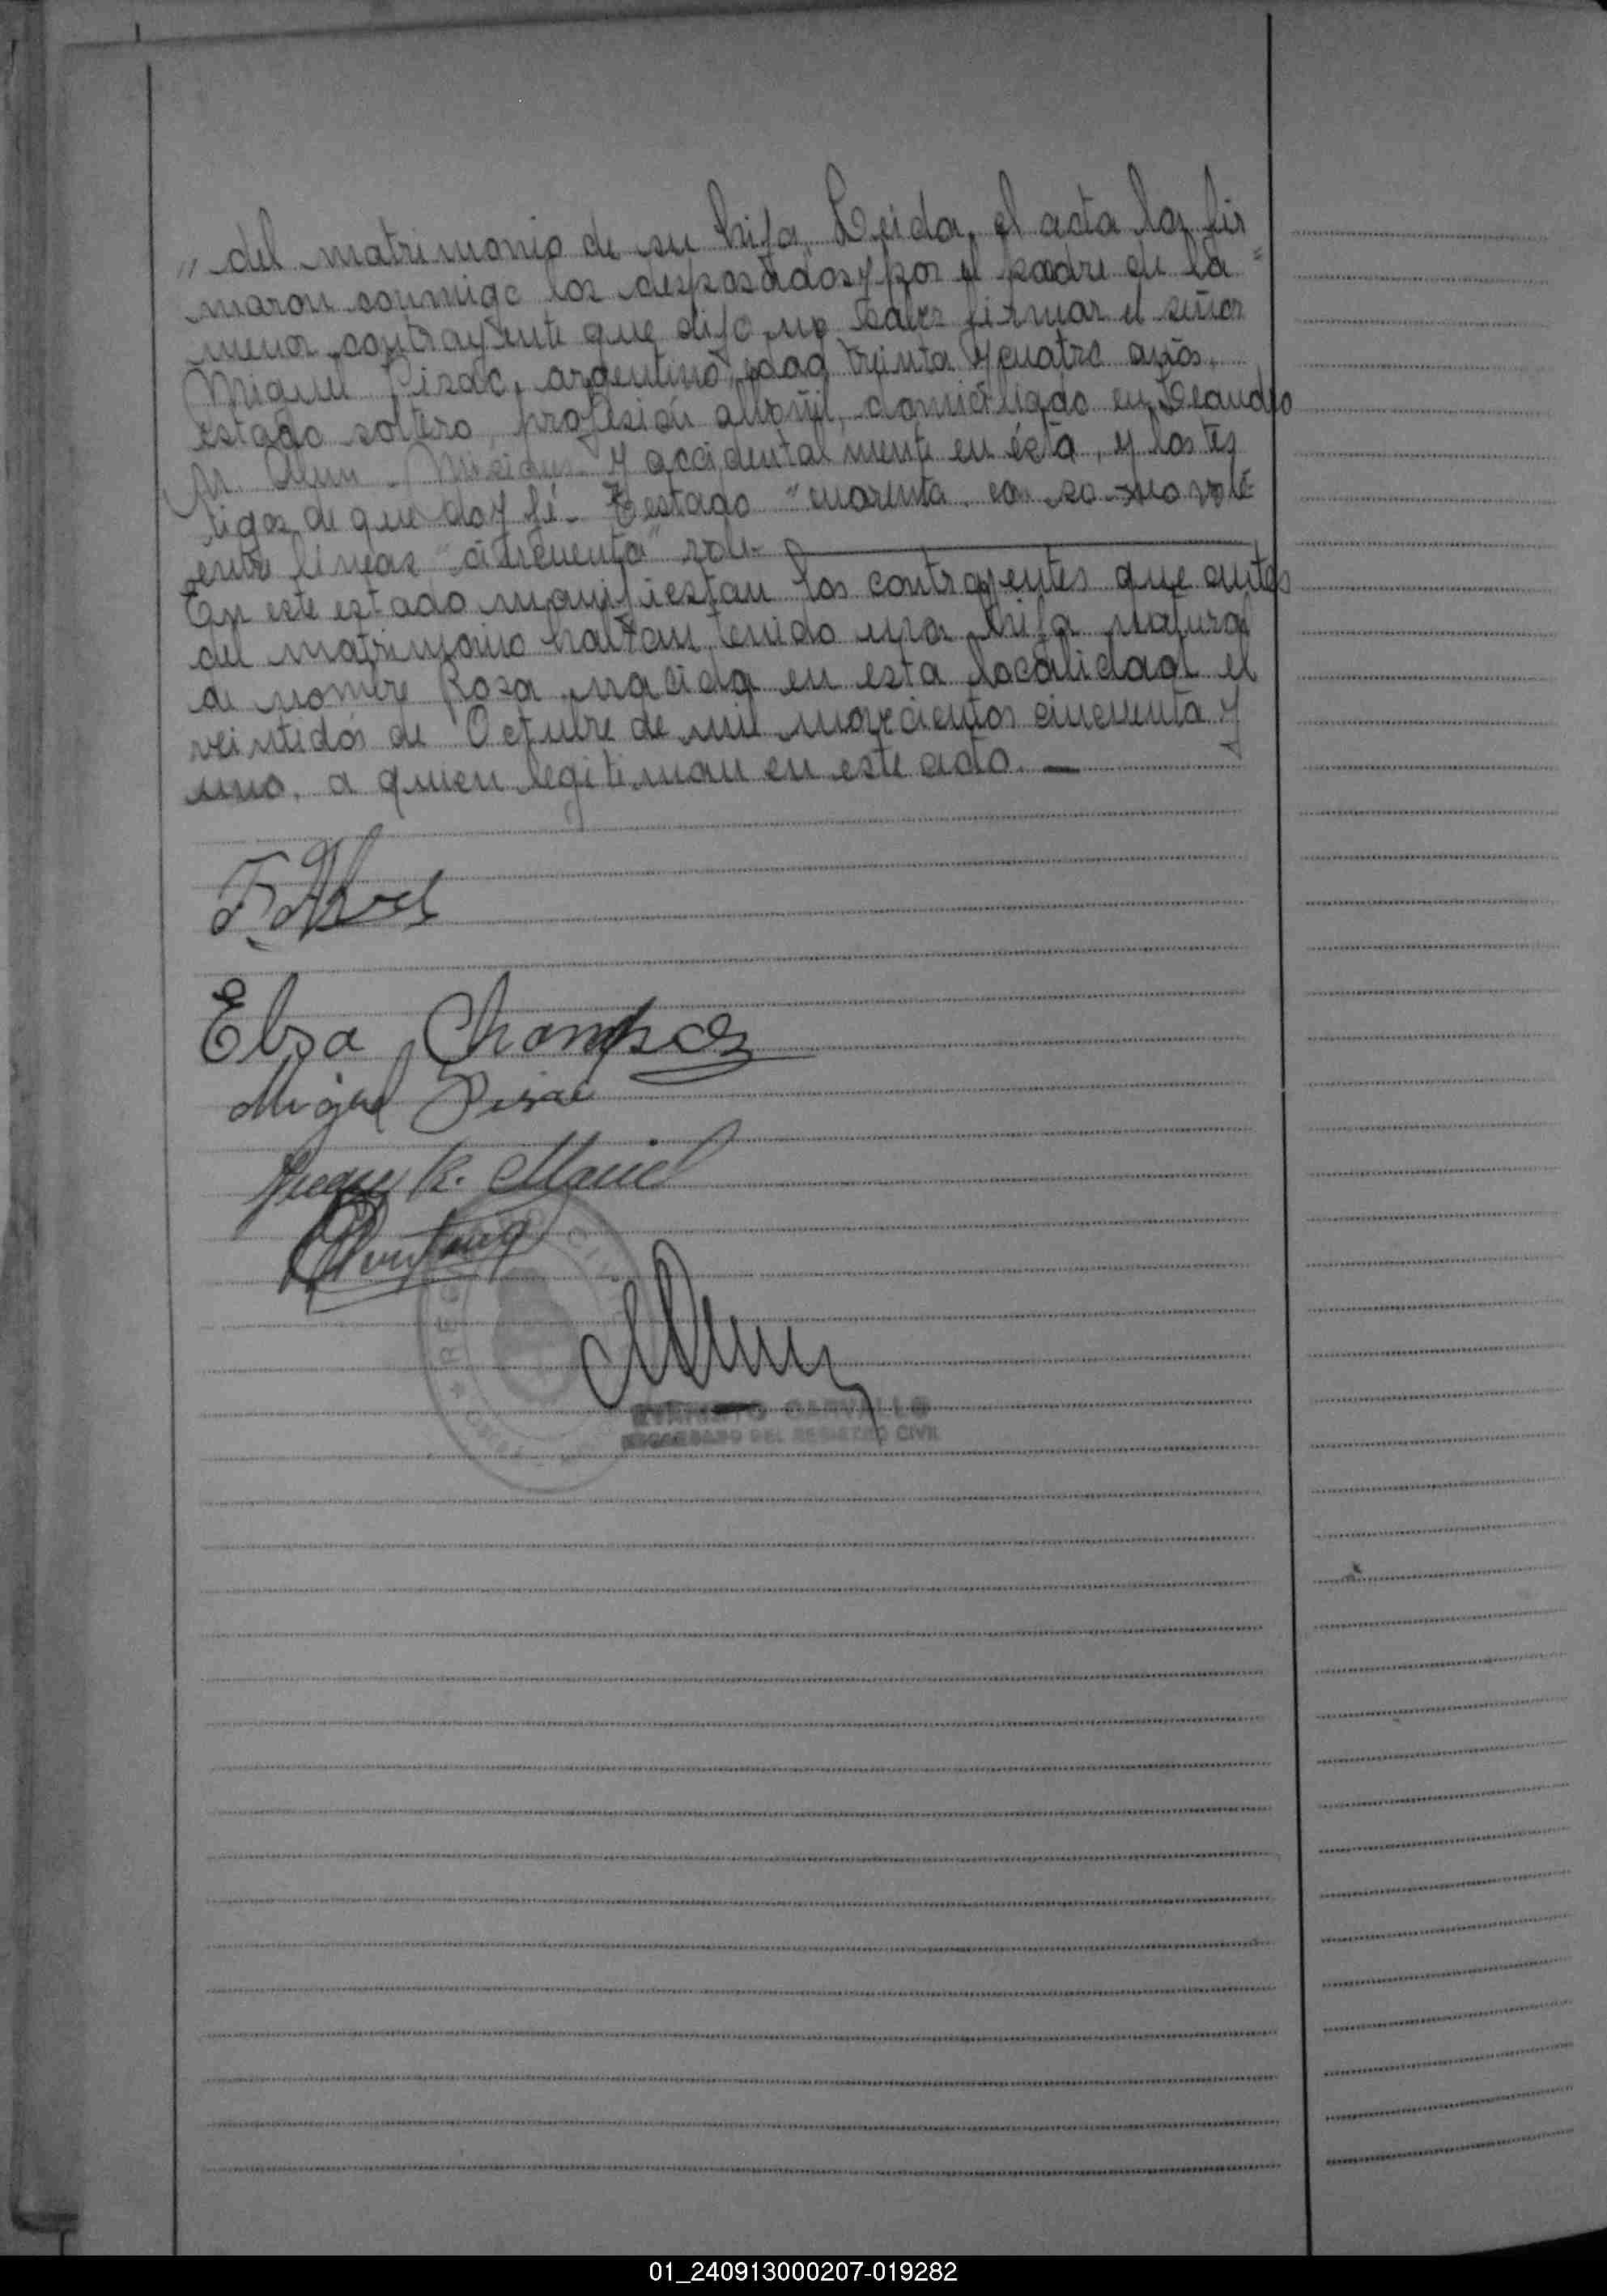 " del matrimonio de su hija. Leida, el acta la fir
maron conmigo los desposados y por el padre de la
menor contrayente que dijo no saber firmar el señor
Miguel Pisac, argentino, edad treinta y cuatro años,
estado soltero, profesión albañil, domiciliado en Leandro
N. Alem Misiones y accidentalmente en ésta, y los tes
tigos de que doy fé. Testado "cuarenta no vale
entre líneas "cincuenta" vale
En este estado manifiestan los contrayentes que antes
del matrimonio habían tenido una hija natural
de nombre Rosa nacida en esta localidad el
veintidós de Octubre de mil novecientos cincuenta y
uno, a quien legitiman en este acto. —
Elsa
Miguel Pisac
R.
REG
CARVALLO
ENCARGADO DEL REGISTRO CIVIL
01_240913000207-019282